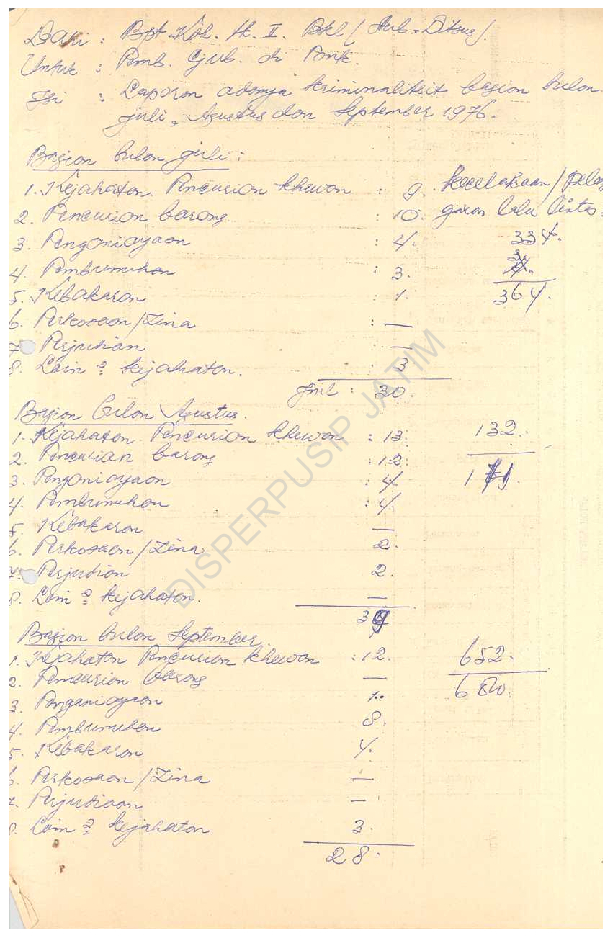 Dari : Bpt. Kol. H. II. Bkl /
Untuk : Pemb. Gub. di Pmk.
Isi : Laporan adanya kriminaliteit bagian bulan
Juli, Agustus dan September 1976.
Bagian bulan Juli :
1. Kejahatan Pencurian khewan : 9. kecelakaan / pelang
2. Pencurian barang : 10. garan lalu lintas
3. Penganiayaan : 4. 334.
4. Pembunuhan : 3.
5. Kebakaran : 1. 364.
6. Perkosaan / Zina : —
7. Perjudian —
8. Lain2 kejahatan. 3
Jml : 30.
Bagian bulan Agustus.
1. Kejahatan Pencurian khewan : 13 132.
2. Pencurian barang : 12
3. Penganiayaan : 4
4. Pembunuhan : 4
5. Kebakaran —
6. Perkosaan / Zina 2.
7. Perjudian 2.
8. Lain2 kejahatan. —
Bagian bulan September.
1. Kejahatan Pencurian khewan : 12. 652.
2. Pencurian barang — 680.
3. Penganiayaan
4. Pembunuhan 8.
5. Kebakaran 4.
6. Perkosaan / Zina —
7. Perjudian —
8. Lain2 kejahatan 3.
28.
DISPERPUSIP JATIM